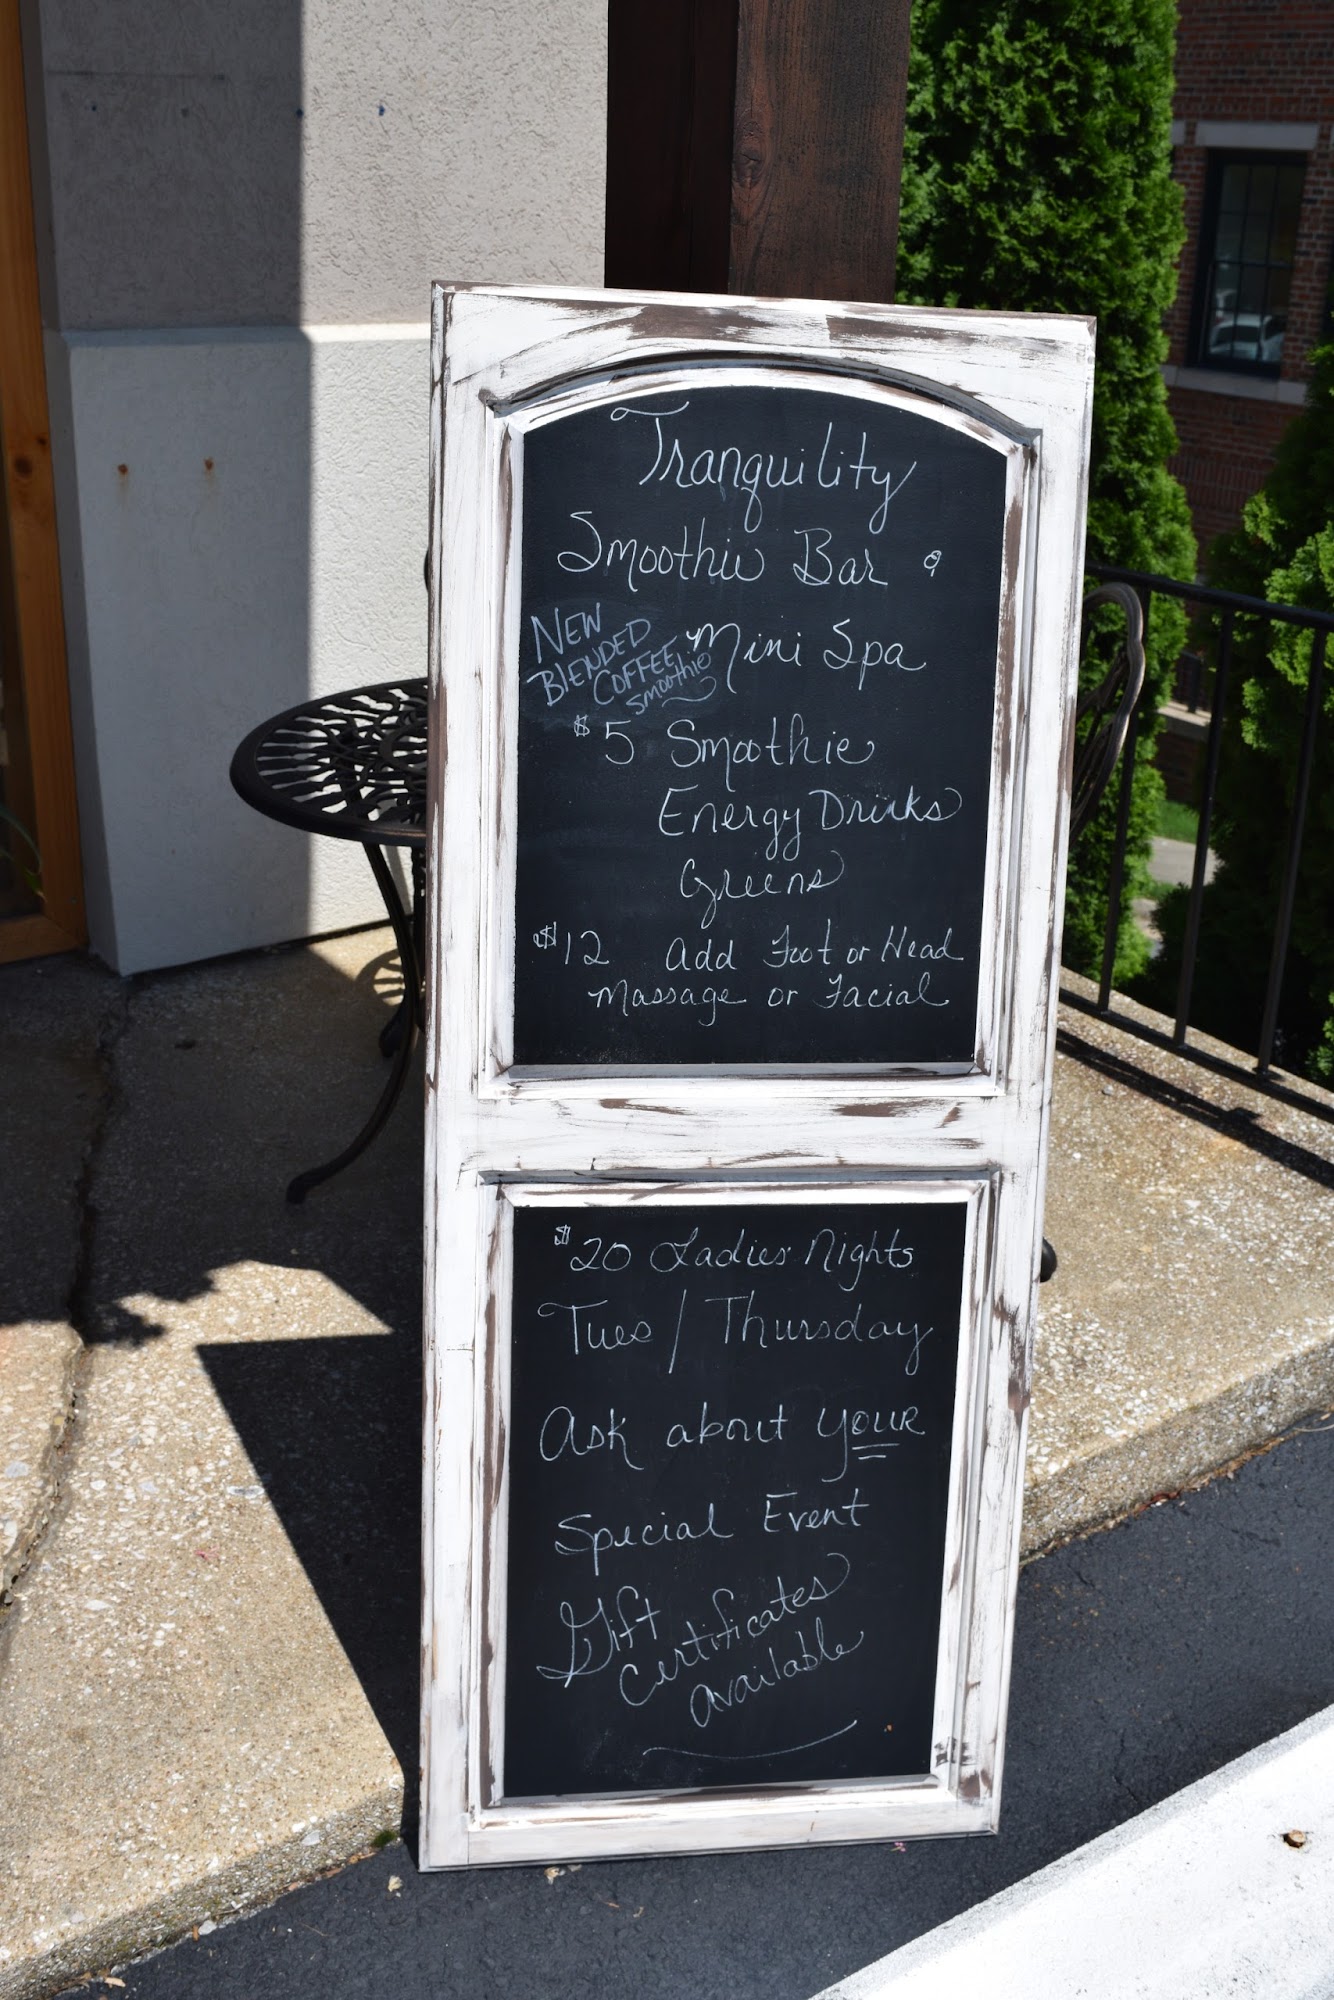 Tranquility
Smoothie Bar &
Mini Spa
NEW
BLENDED
COFFEE
Smoothie
$5 Smoothie
Energy Drinks
Greens
$12 Add Foot or Head
Massage or Facial
$20 Ladies Nights
Tues / Thursday
Ask about your
Special Event
Gift
Certificates
Available